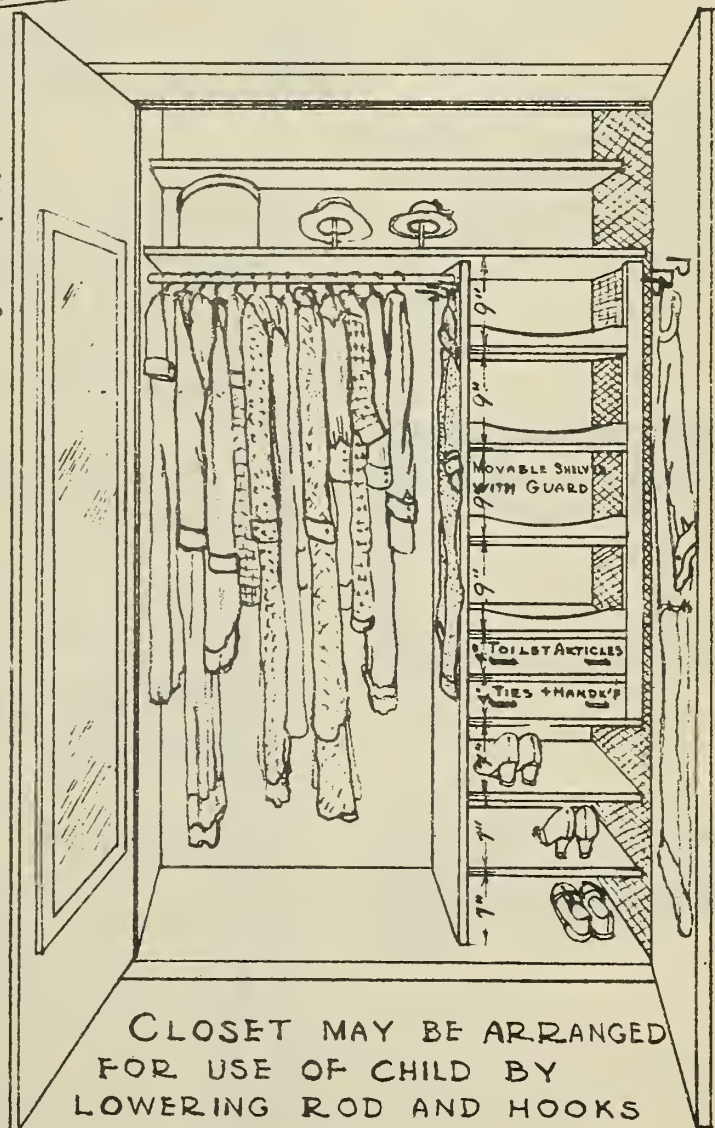 9"
9"
MOVABLE SHELVES
WITH GUARD
9"
9"
4"
TOILET ARTICLES
4"
TIES + HANDK'F
7"
7"
7"
CLOSET MAY BE ARRANGED
FOR USE OF CHILD BY
LOWERING ROD AND HOOKS